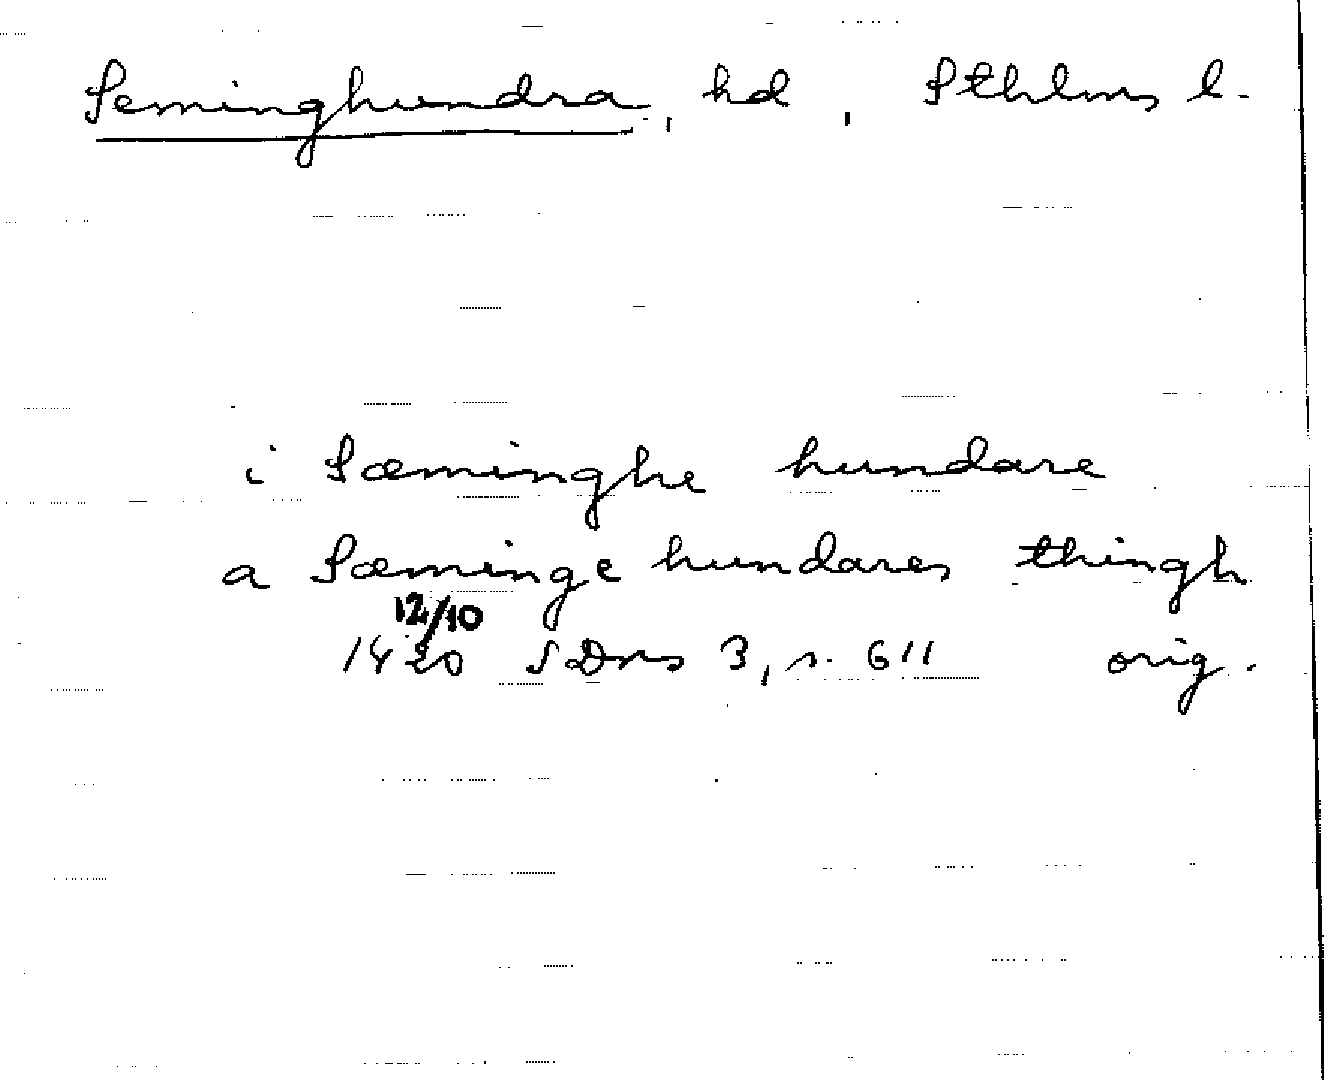 Seminghundra, hd, Sthlms l.
i Sæminghe hundare
a Sæminge hundares thingh
12/10
1420 SDns 3, s. 611 orig.